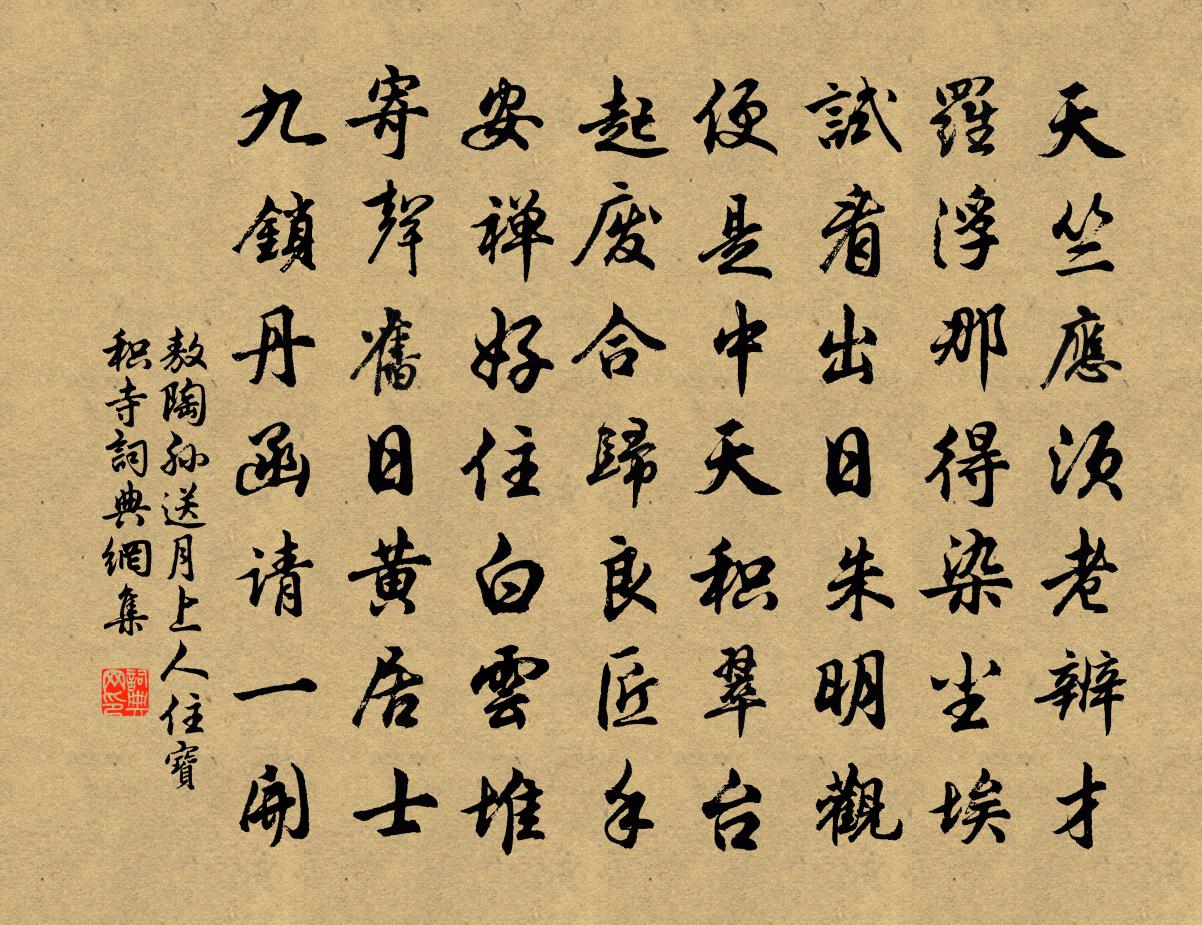 天竺應須老辨才
羅浮那得染尘埃
試看出日朱明觀
便是中天积翠台
起废合歸良匠手
安禅好住白雲堆
寄聲舊日黄居士
九鎖丹函请一開
敖陶孙送月上人住寶
积寺詞典網集
詞典网印